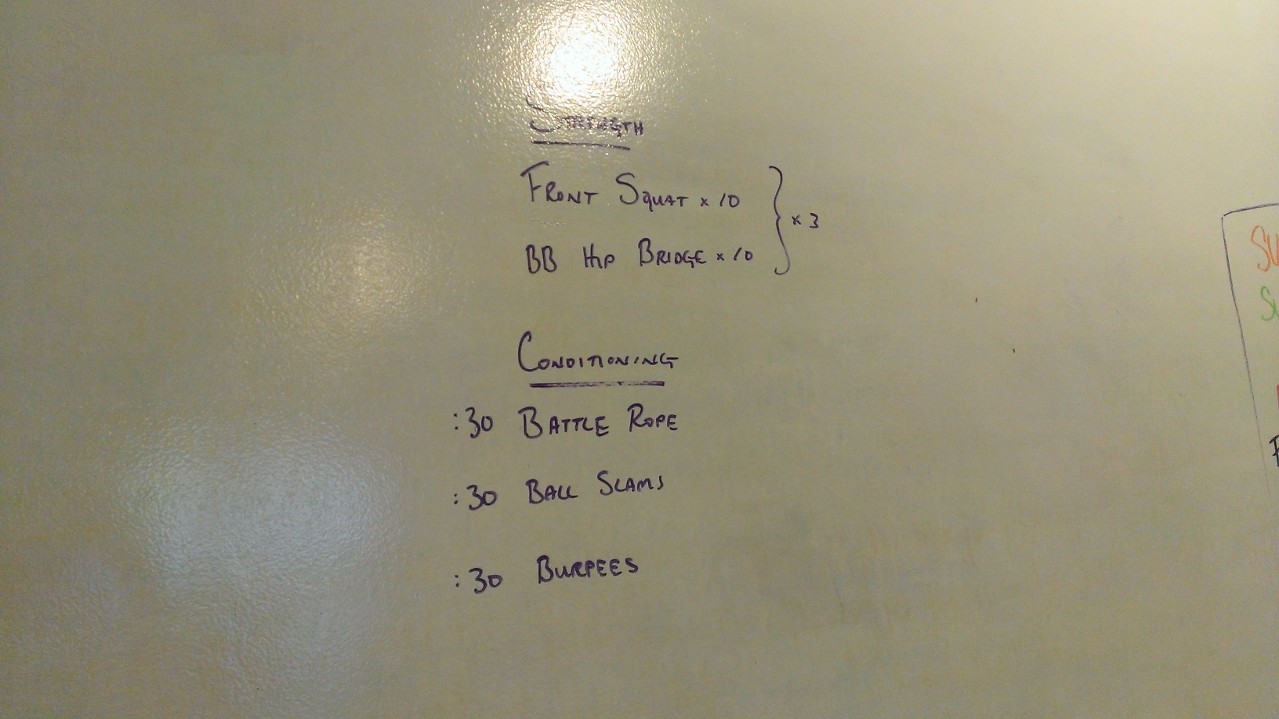 STRENGTH
FRONT SQUAT x 10
BB HIP BRIDGE x 10
x 3
CONDITIONING
:30 BATTLE ROPE
:30 BALL SLAMS
:30 BURPEES